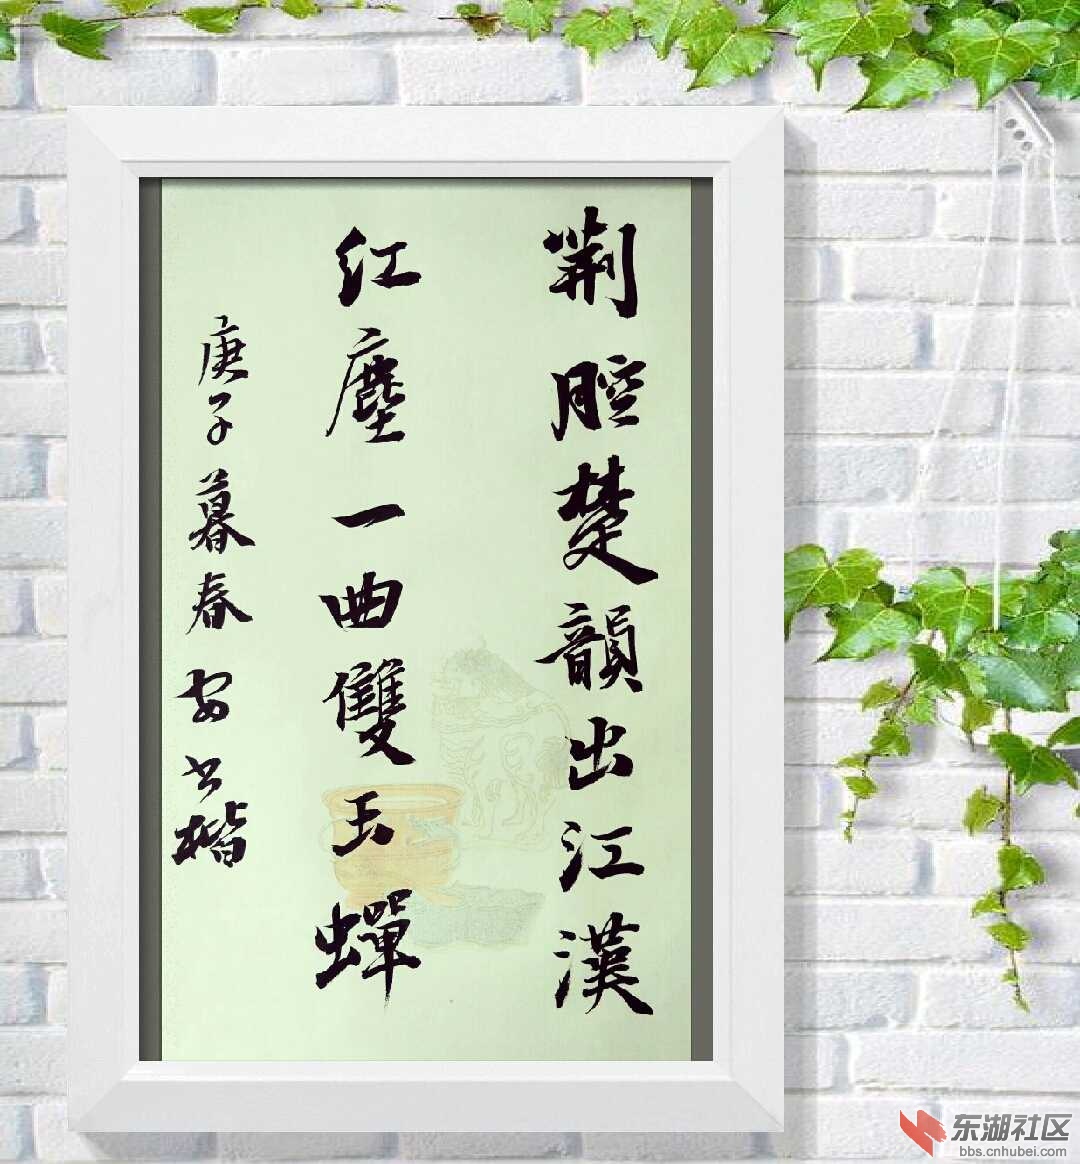 荆腔楚韻出江漢
红塵一曲雙玉蟬
庚子暮春安楷
东湖社区
bbs.cnhubei.com